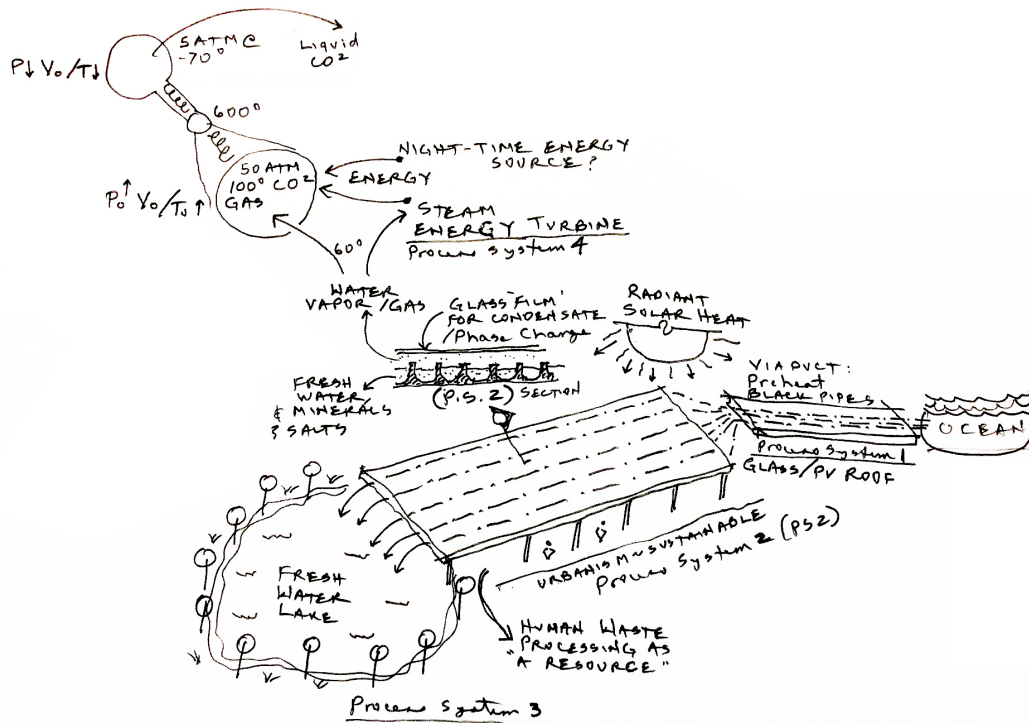 5 ATM @
-70°
Liquid
CO2
P↓ V₀/T↓
600°
50 ATM
100° CO2
GAS
P₀↑ V₀/T₀↑
NIGHT-TIME ENERGY
SOURCE?
ENERGY
STEAM
ENERGY TURBINE
Process System 4
60°
WATER
VAPOR/GAS
GLASS 'FILM'
FOR CONDENSATE
/Phase Change
RADIANT
SOLAR HEAT
FRESH
WATER
& MINERALS
& SALTS
(P.S. 2) SECTION
VIADUCT:
Preheat
BLACK PIPES
OCEAN
Process System 1
GLASS/PV ROOF
URBANISM~SUSTAINABLE
Process System 2 (PS2)
FRESH
WATER
LAKE
HUMAN WASTE
PROCESSING AS
"A RESOURCE"
Process System 3